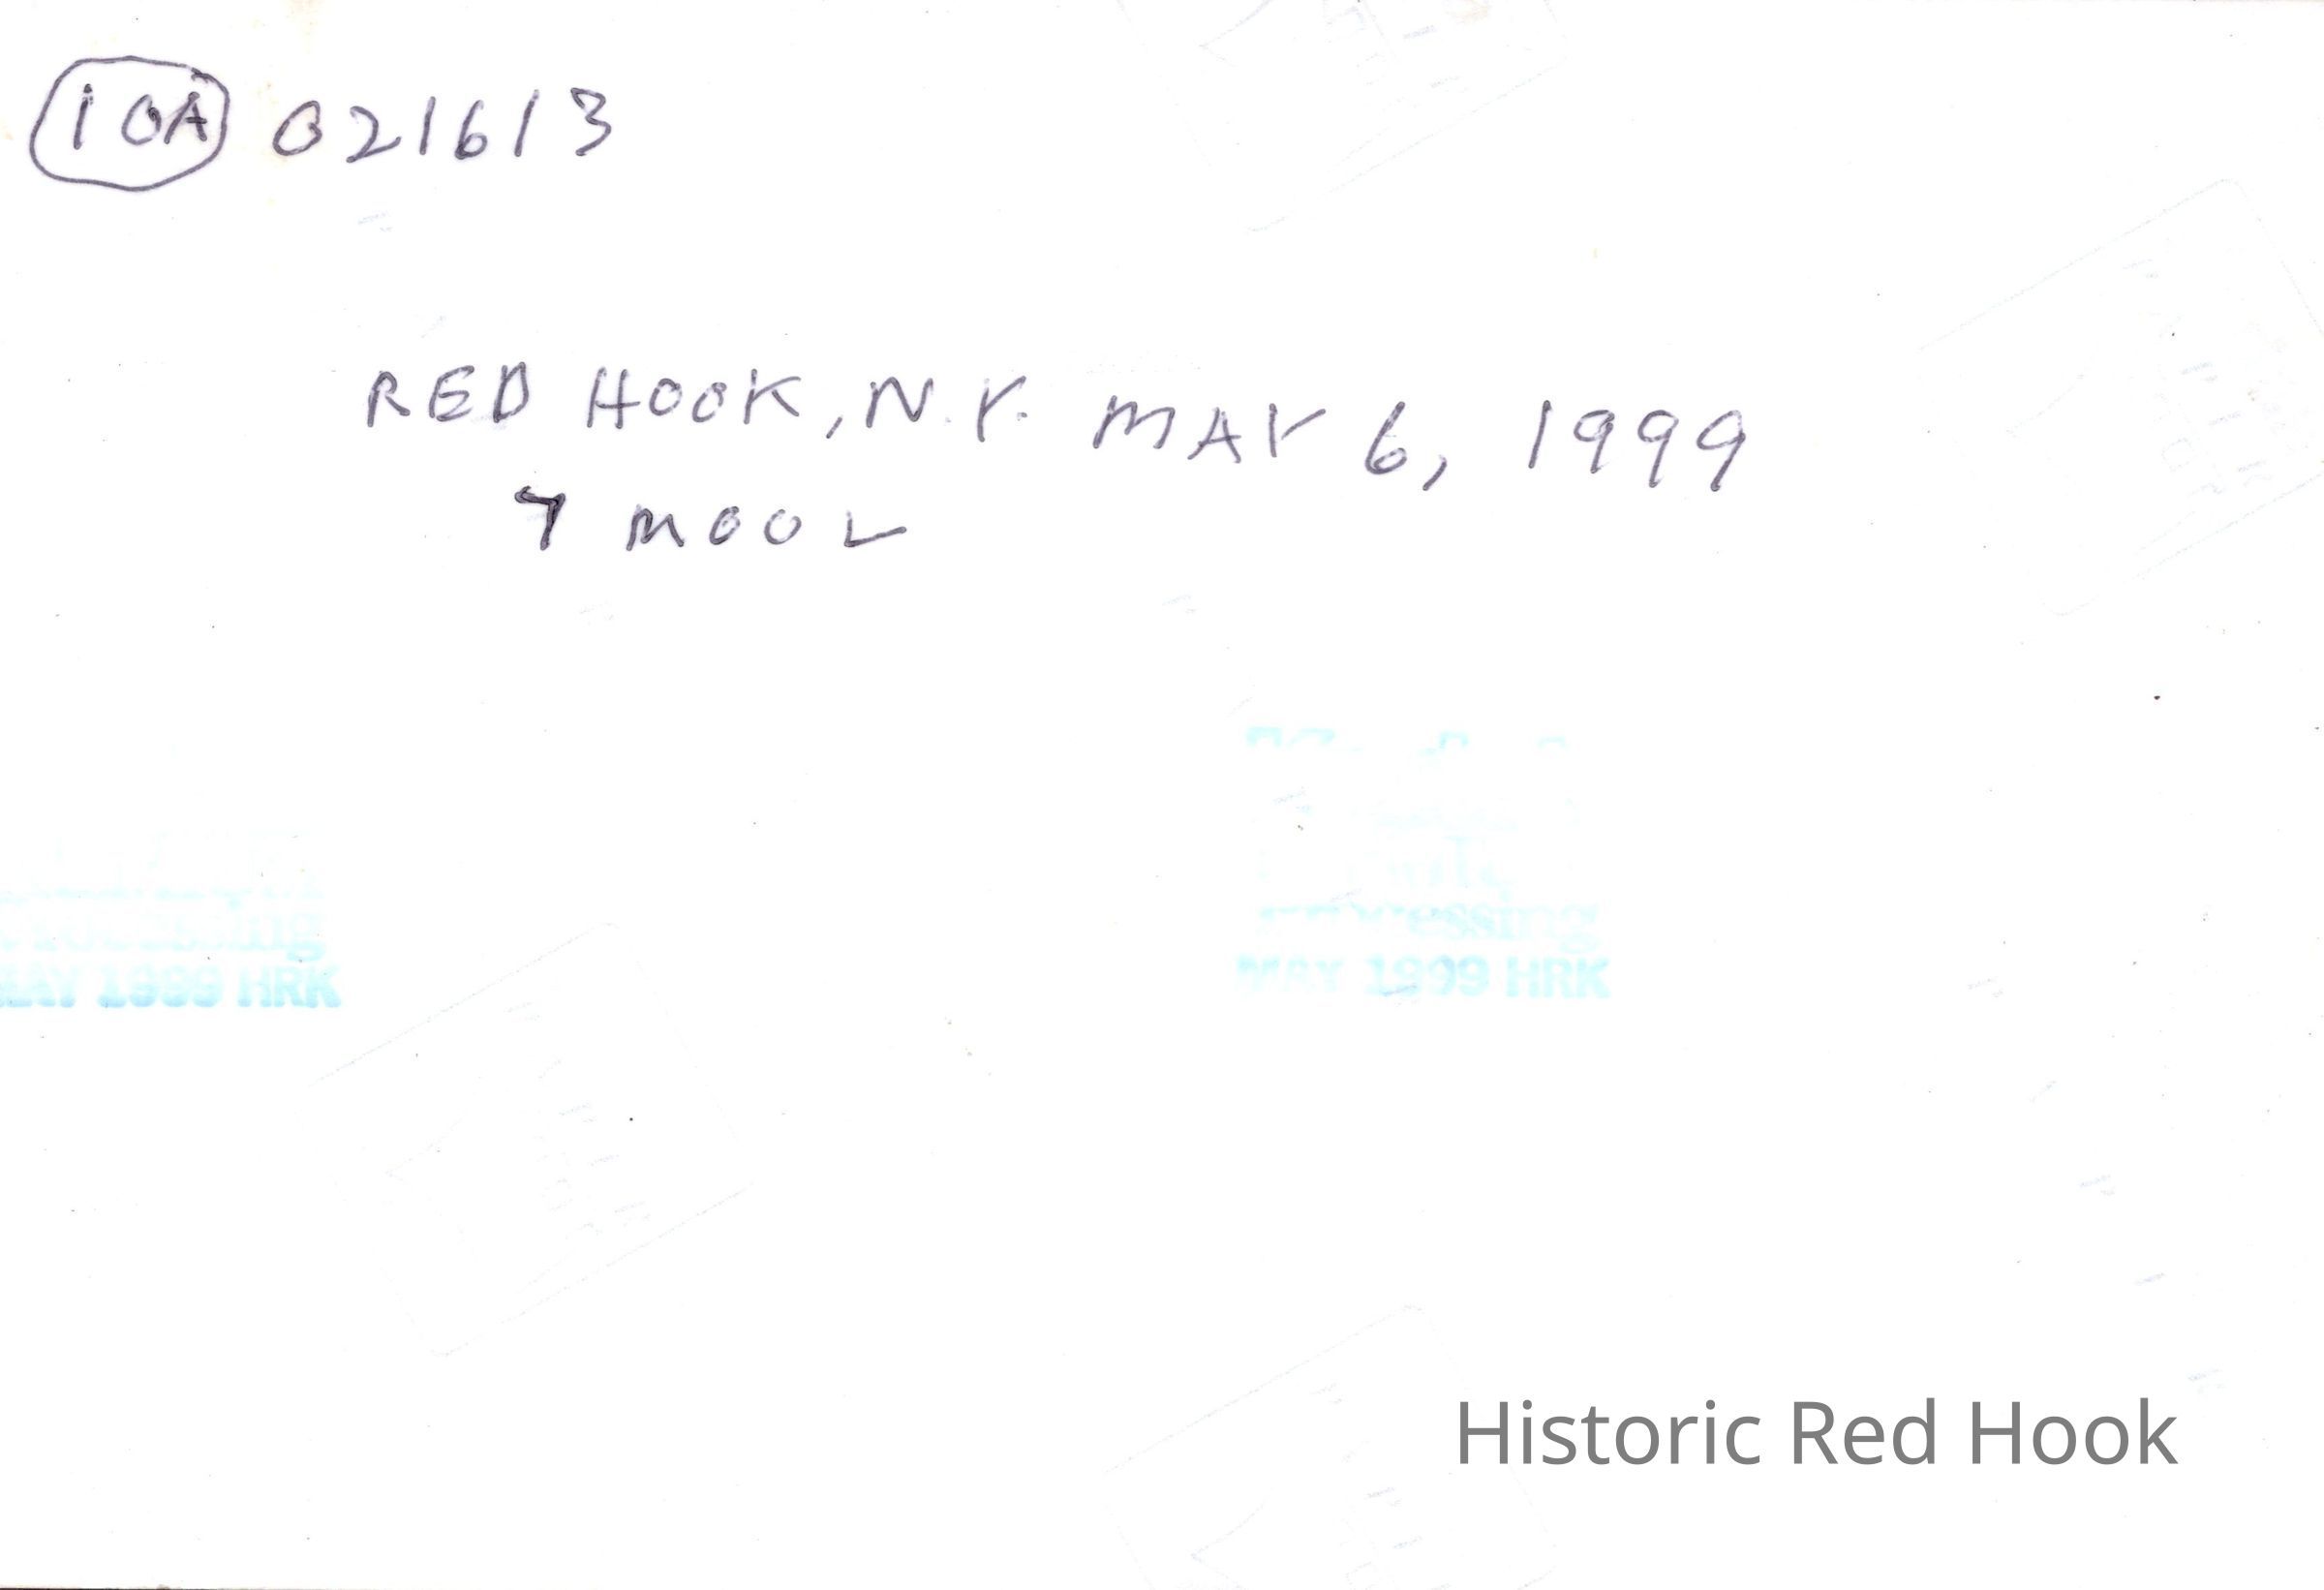 10A 021613
RED HOOK, N.Y. MAY 6, 1999
7 MOOL
Processing
Processing
MAY 1999 HRK
MAY 1999 HRK
Historic Red Hook